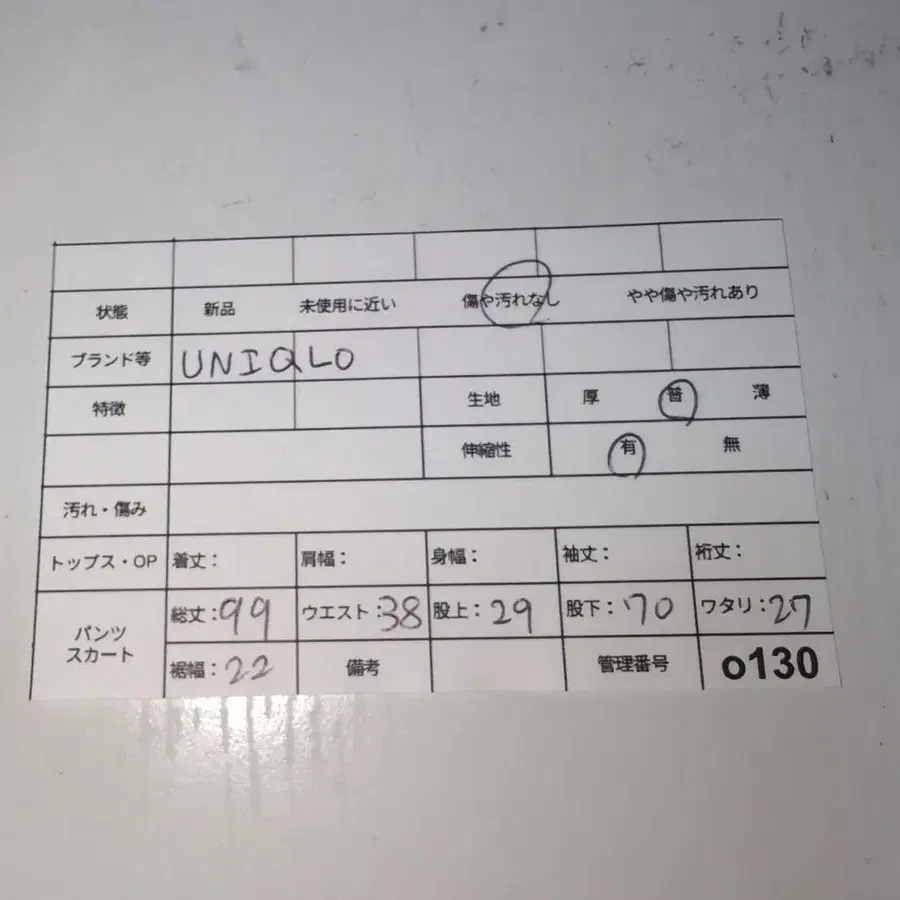 状態 新品 未使用に近い 傷や汚れなし やや傷や汚れあり
ブランド等 UNIQLO
特徴 生地 厚 普 薄
伸縮性 有 無
汚れ・傷み
トップス・OP 着丈: 肩幅: 身幅: 袖丈: 裄丈:
パンツ スカート 総丈:99 ウエスト:38 股上:29 股下:70 ワタリ:27
裾幅:22 備考 管理番号 o130